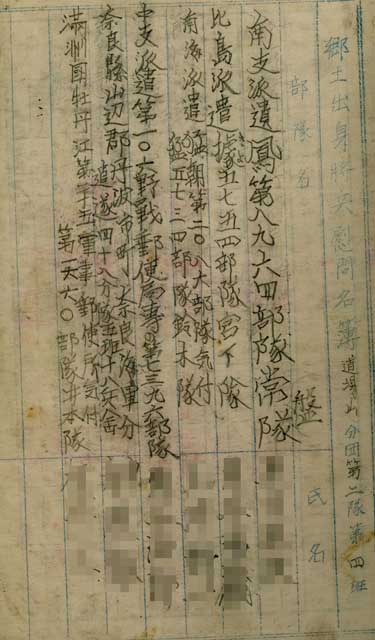 郷土出身将兵慰問名簿 道場山分団第二隊第四班
部隊名 氏名
南支派遣鳳第八九六四部隊常盤隊
比島派遣據五七五四部隊宮下隊
南海派遣猛朝第二〇八大部隊気付
猛五七三四部隊鈴木隊
中支派遣第一〇一野戦郵便局専の第七三九六部隊
奈良縣山辺郡丹波市町、奈良海軍分
遣隊四十八分隊五班十八兵舎
満洲国牡丹江第子五軍事郵便所気付
第一六六〇部隊井本隊